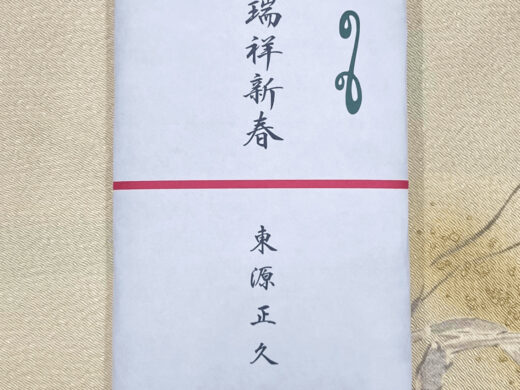 瑞祥新春
東源正久